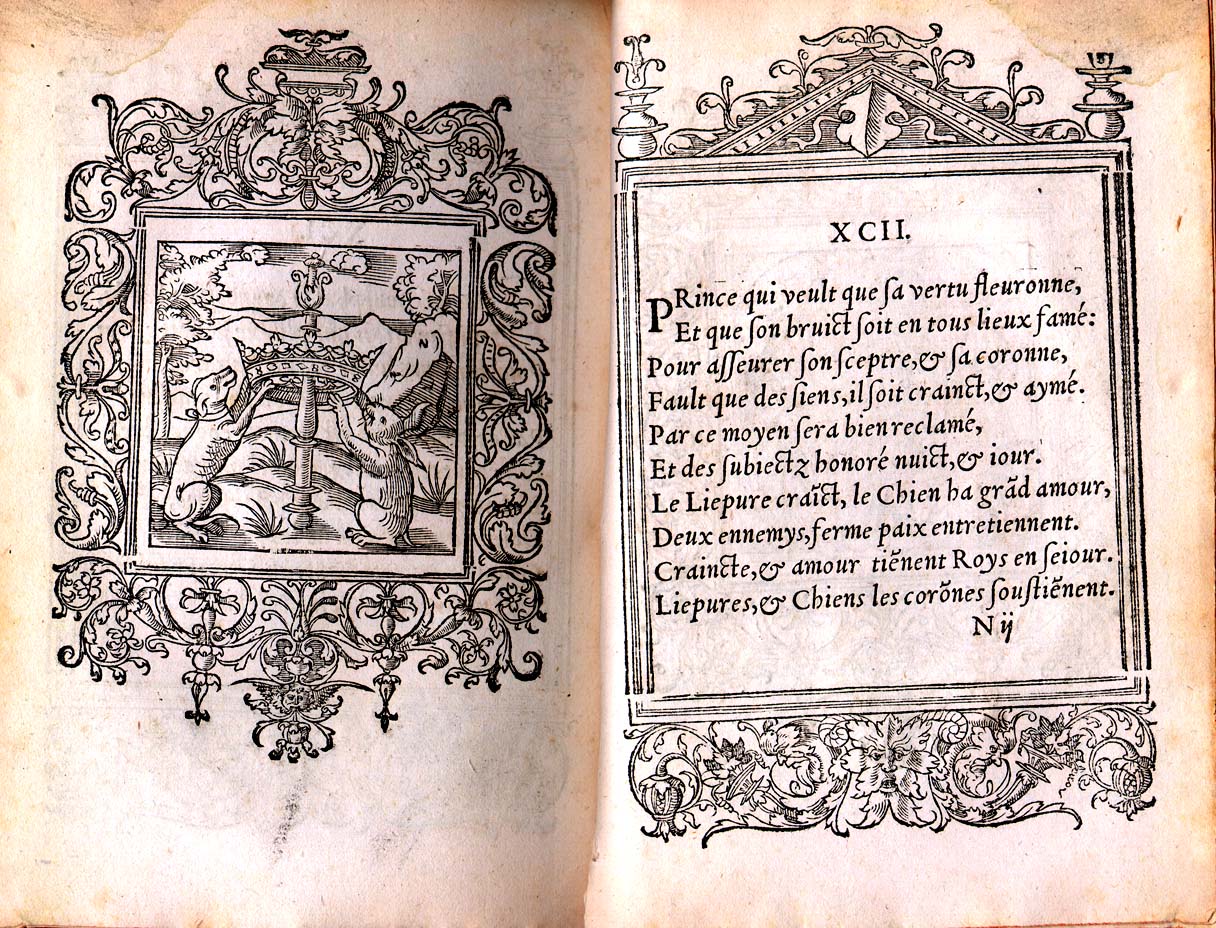 XCII.
PRince qui veult que ſa vertu fleuronne,
Et que ſon bruict ſoit en tous lieux famé:
Pour aſſeurer ſon ſceptre, & ſa coronne,
Fault que des ſiens, il ſoit crainct, & aymé.
Par ce moyen ſera bien reclamé,
Et des ſubiectz honoré nuict, & iour.
Le Liepure craĩct, le Chien ha grãd amour,
Deux ennemys, ferme paix entretiennent.
Craincte, & amour tiẽnent Roys en ſeiour.
Liepures, & Chiens les corõnes ſouſtiẽnent.
N ij